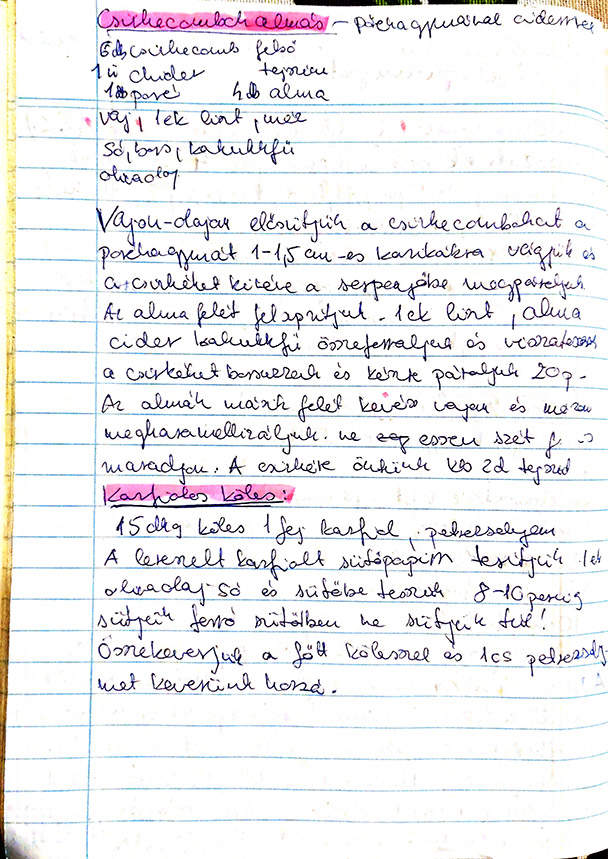 Csirkecombok almás - póréhagymával cideresen
6 db csirkecomb felső
1 ü cider tejszín
1 db póré 4 db alma
vaj, 1 ek liszt, méz
só, bors, kakukkfű
olivaolaj
Vajon-olajon elősütjük a csirkecombokat a
póréhagymát 1-1,5 cm-es karikákra vágjuk és
a csirkéket kivéve a serpenyőbe megpároljuk
Az alma felét felaprítjuk. 1 ek liszt, alma
cider kakukkfű összeforraljuk és visszatesszük
a csirkéket borsozzuk és készre pároljuk 20p.
Az almák másik felét kevés vajon és mézen
megkaramellizáljuk. ne essen szét
maradjon. A csirkére öntünk kb 2d tejszínt
Karfiolos köles:
15 dkg köles 1 fej karfiol, petrezselyem
A leszedett karfiolt sütőpapírra terítjük 1 ek
olivaolaj só és sütőbe tesszük 8-10 percig
sütjük forró sütőben ne sütjük túl!
Összekeverjük a főtt kölessel és 1 cs petrezsely-
met keverünk hozzá.